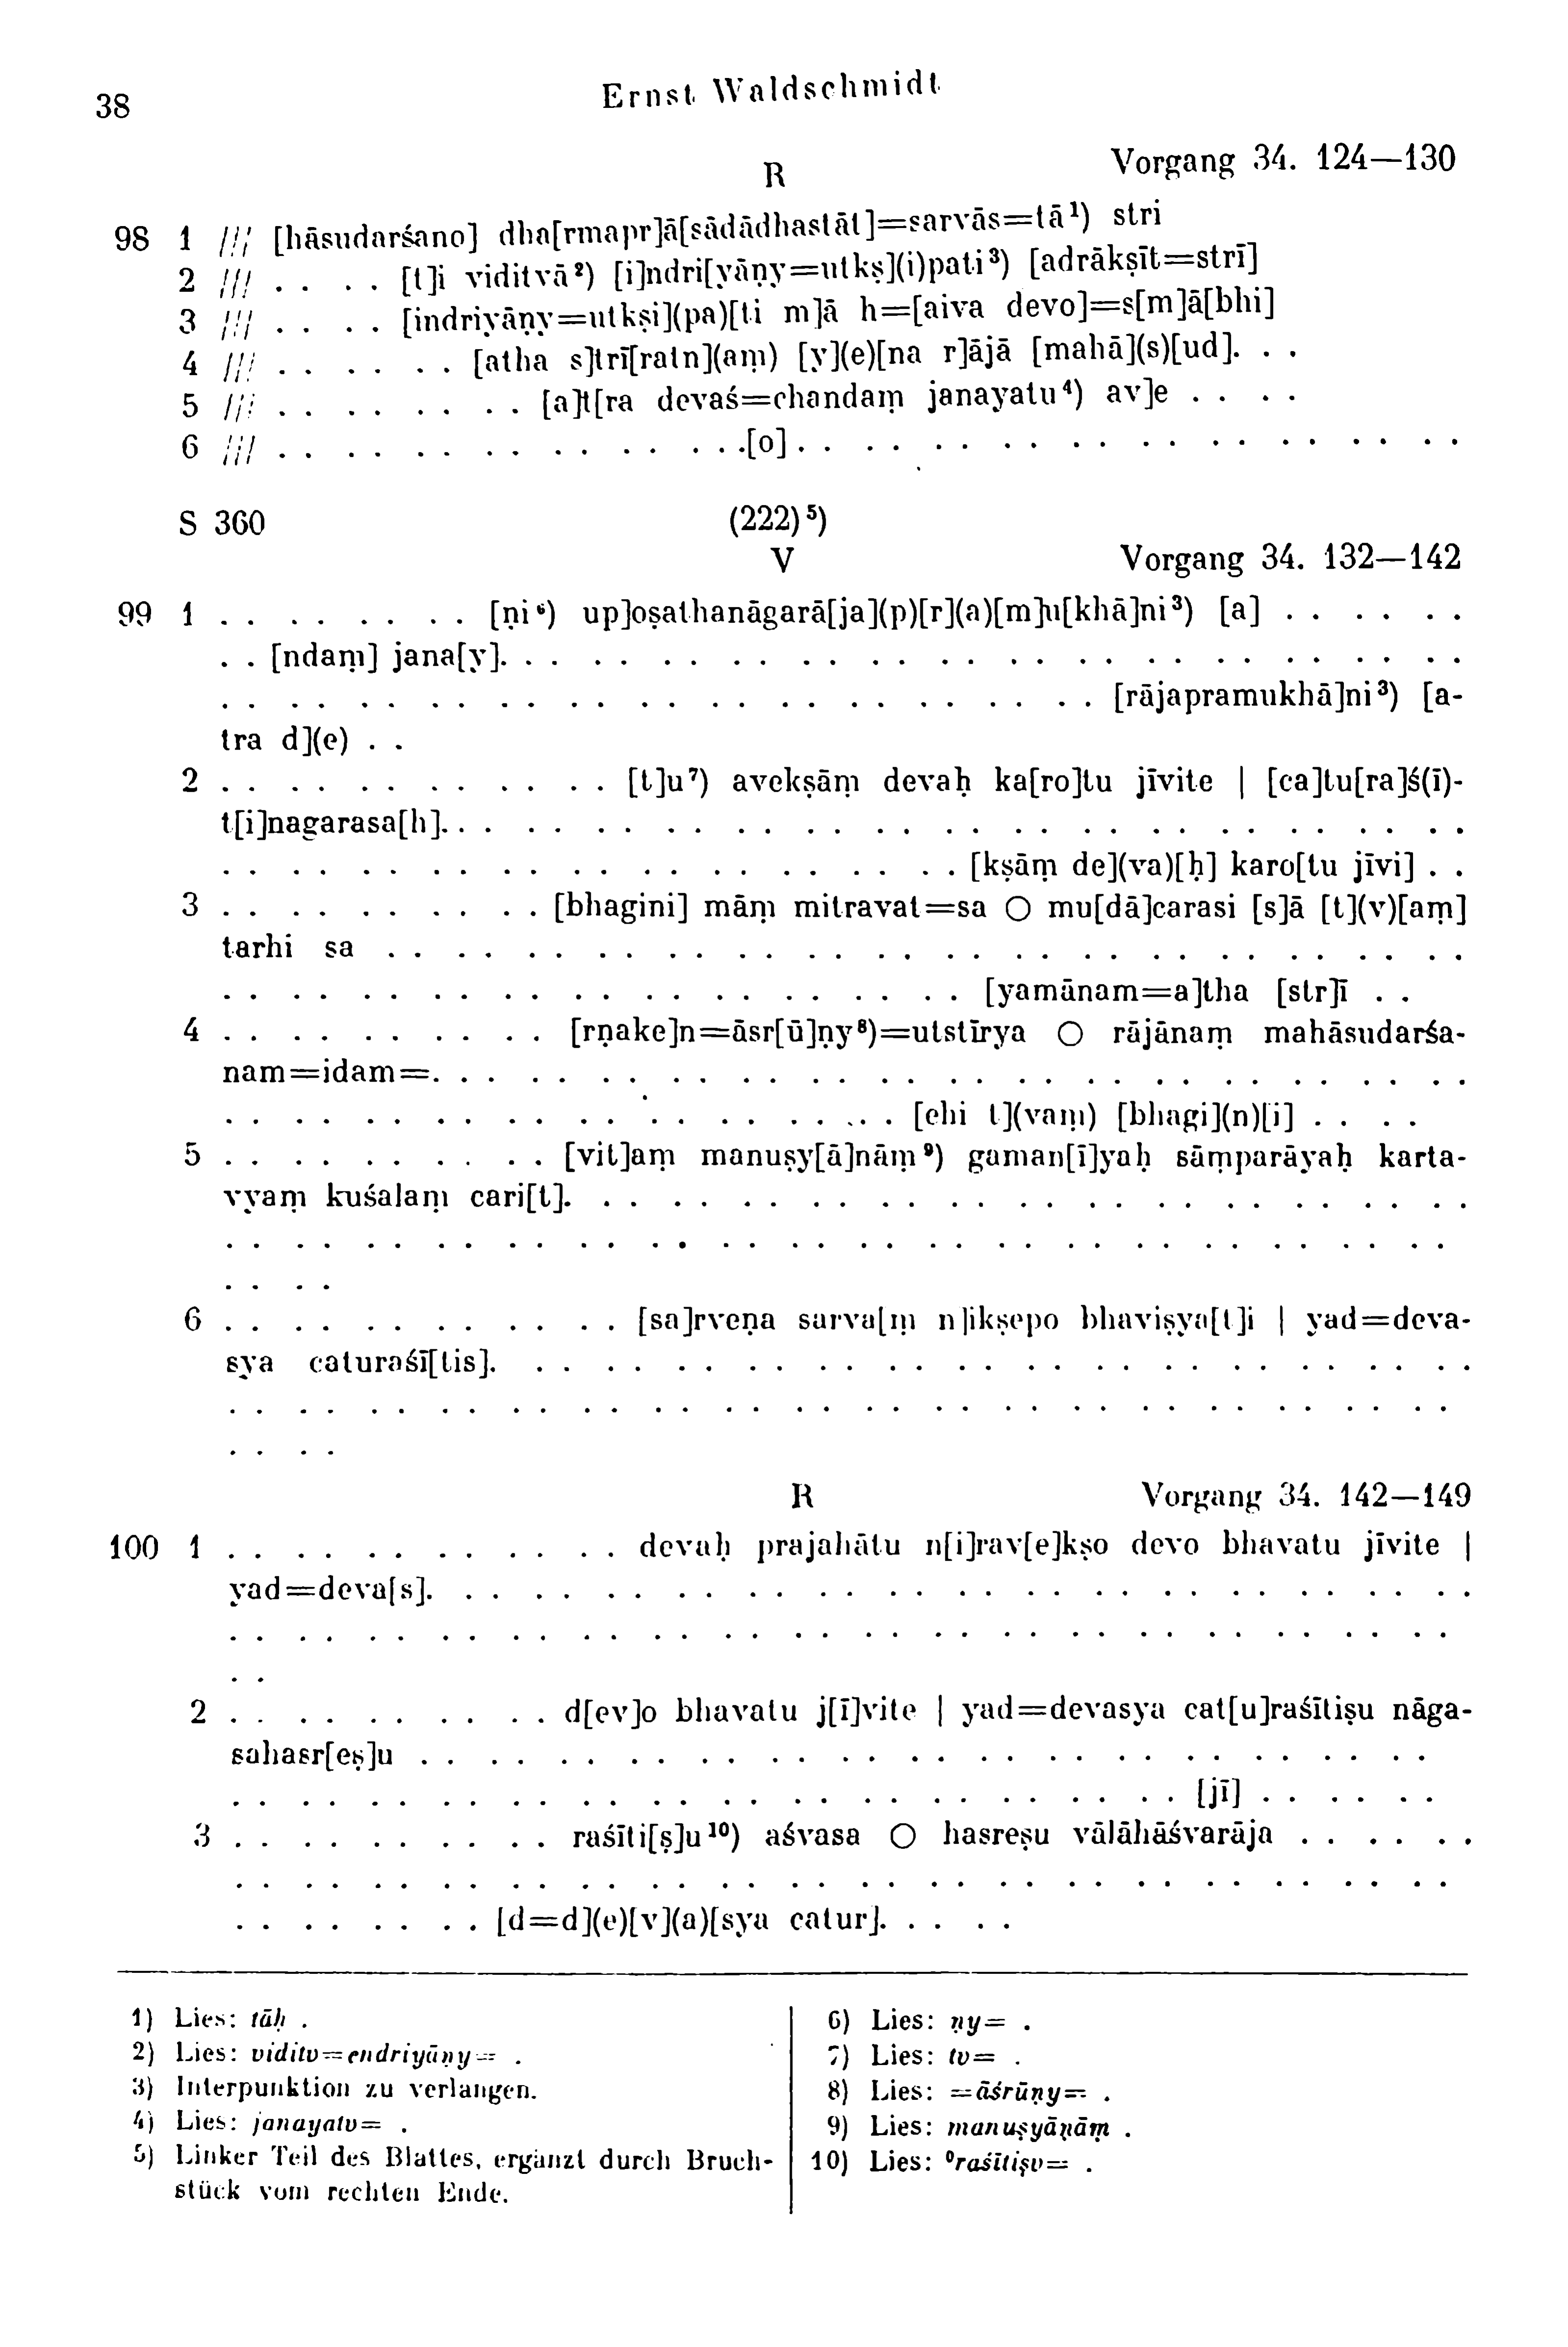 38
Ernst Waldschmidt
R
Vorgang 34. 124—130
98 1 /// [hāsudarśano] dha[rmapr]ā[sādādhastāt]=sarvās=tā¹) stri
2 /// . . . . [t]i viditvā²) [i]ndri[yāṇy=utkṣ](i)pati³) [adrākṣīt=strī]
3 /// . . . . [indriyāṇy=utkṣi](pa)[ti m]ā h=[aiva devo]=s[m]ā[bhi]
4 /// . . . . . . [atha s]trī[ratn](aṃ) [y](e)[na r]ājā [mahā](s)[ud]. . .
5 /// . . . . . . . . [a]t[ra devaś=chandaṃ janayatu⁴) av]e . . . .
6 /// . . . . . . . . . . . . . . .[o]. . . . . . . . . . . . . . . . . . . .
S 360
(222)⁵)
V
Vorgang 34. 132—142
99 1 . . . . . . . . [ṇi⁶) up]oṣathanāgarā[ja](p)[r](a)[m]u[khā]ni³) [a] . . . . . .
. . [ndaṃ] jana[y]. . . . . . . . . . . . . . . . . . . . . . . . . . . . .
. . . . . . . . . . . . . . . . . . . . . . . . . . [rājapramukhā]ni³) [a-
tra d](e) . .
2 . . . . . . . . . . . . [t]u⁷) avekṣāṃ devaḥ ka[ro]tu jīvite | [ca]tu[ra]ś(ī)-
t[i]nagarasa[h]. . . . . . . . . . . . . . . . . . . . . . . . . . . . . .
. . . . . . . . . . . . . . . . . . . . . . [kṣāṃ de](va)[ḥ] karo[tu jīvi] . .
3 . . . . . . . . . . [bhagini] māṃ mitravat=sa O mu[dā]carasi [s]ā [t](v)[aṃ]
tarhi sa . . . . . . . . . . . . . . . . . . . . . . . . . . . . . . . .
. . . . . . . . . . . . . . . . . . . . . . [yamānam=a]tha [str]ī . .
4 . . . . . . . . . . [rṇake]n=āsr[ū]ṇy⁸)=utstīrya O rājānaṃ mahāsudarśa-
nam=idam=. . . . . . . . . . . . . . . . . . . . . . . . . . . . . .
. . . . . . . . . . . . . . . . . . . . [ehi t](vaṃ) [bhagi](n)[i] . . . .
5 . . . . . . . . . . [vit]aṃ manuṣy[ā]nāṃ⁹) gaman[ī]yaḥ sāṃparāyaḥ karta-
vyaṃ kuśalaṃ cari[t]. . . . . . . . . . . . . . . . . . . . . . . . . . .
. . . . . . . . . . . . . . . . . . . . . . . . . . . . . . . . . . . .
. . . .
6 . . . . . . . . . . . . [sa]rveṇa sarva[ṃ n]ikṣepo bhaviṣya[t]i | yad=deva-
sya caturaśī[tis]. . . . . . . . . . . . . . . . . . . . . . . . . . . . .
. . . . . . . . . . . . . . . . . . . . . . . . . . . . . . . . . . . .
. . . .
R
Vorgang 34. 142—149
100 1 . . . . . . . . . . . . devaḥ prajahātu n[i]rav[e]kṣo devo bhavatu jīvite |
yad=deva[s]. . . . . . . . . . . . . . . . . . . . . . . . . . . . . . .
. . . . . . . . . . . . . . . . . . . . . . . . . . . . . . . . . . . .
. .
2 . . . . . . . . . . d[ev]o bhavatu j[ī]vite | yad=devasya cat[u]raśītiṣu nāga-
sahasr[eṣ]u . . . . . . . . . . . . . . . . . . . . . . . . . . . . . .
. . . . . . . . . . . . . . . . . . . . . . . . . . . . [jī] . . . . . .
3 . . . . . . . . . . raśīti[ṣ]u¹⁰) aśvasa O hasreṣu vālāhāśvarāja . . . . . .
. . . . . . . . . . . . . . . . . . . . . . . . . . . . . . . . . . . .
. . . . . . . . [d=d](e)[v](a)[sya catur]. . . . .
1) Lies: tāḥ .
2) Lies: viditv=endriyāṇy= .
3) Interpunktion zu verlangen.
4) Lies: janayatv= .
5) Linker Teil des Blattes, ergänzt durch Bruch-
stück vom rechten Ende.
6) Lies: ṇy= .
7) Lies: tv= .
8) Lies: =āśrūṇy= .
9) Lies: manuṣyāṇāṃ .
10) Lies: ⁰raśītiṣv= .